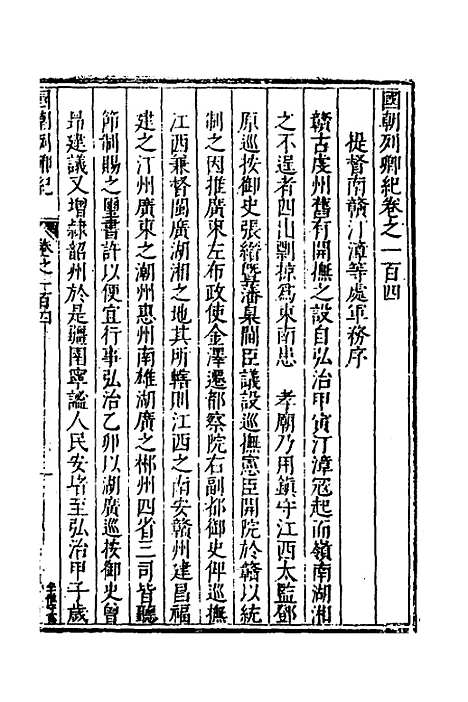 國朝列卿紀卷之一百四
提督南贛汀漳等處軍務序
贛古虔州舊有開撫之設自弘治甲寅汀漳寇起而嶺南湖湘
之不逞者四出剽掠為東南患 孝廟乃用鎮守江西太監鄧
原巡按御史張縉暨藩臬閫臣議設巡撫憲臣開院於贛以統
制之因推廣東左布政使金澤遷都察院右副都御史俾巡撫
江西兼督閩廣湖湘之地其所轄則江西之南安贛州建昌福
建之汀州廣東之潮州惠州南雄湖廣之郴州四省三司皆聽
節制賜之璽書許以便宜行事弘治乙卯以湖廣巡按御史曾
昂建議又增隸韶州於是疆圉寧謐人民安堵至弘治甲子歲
國朝列卿紀 卷之一百四